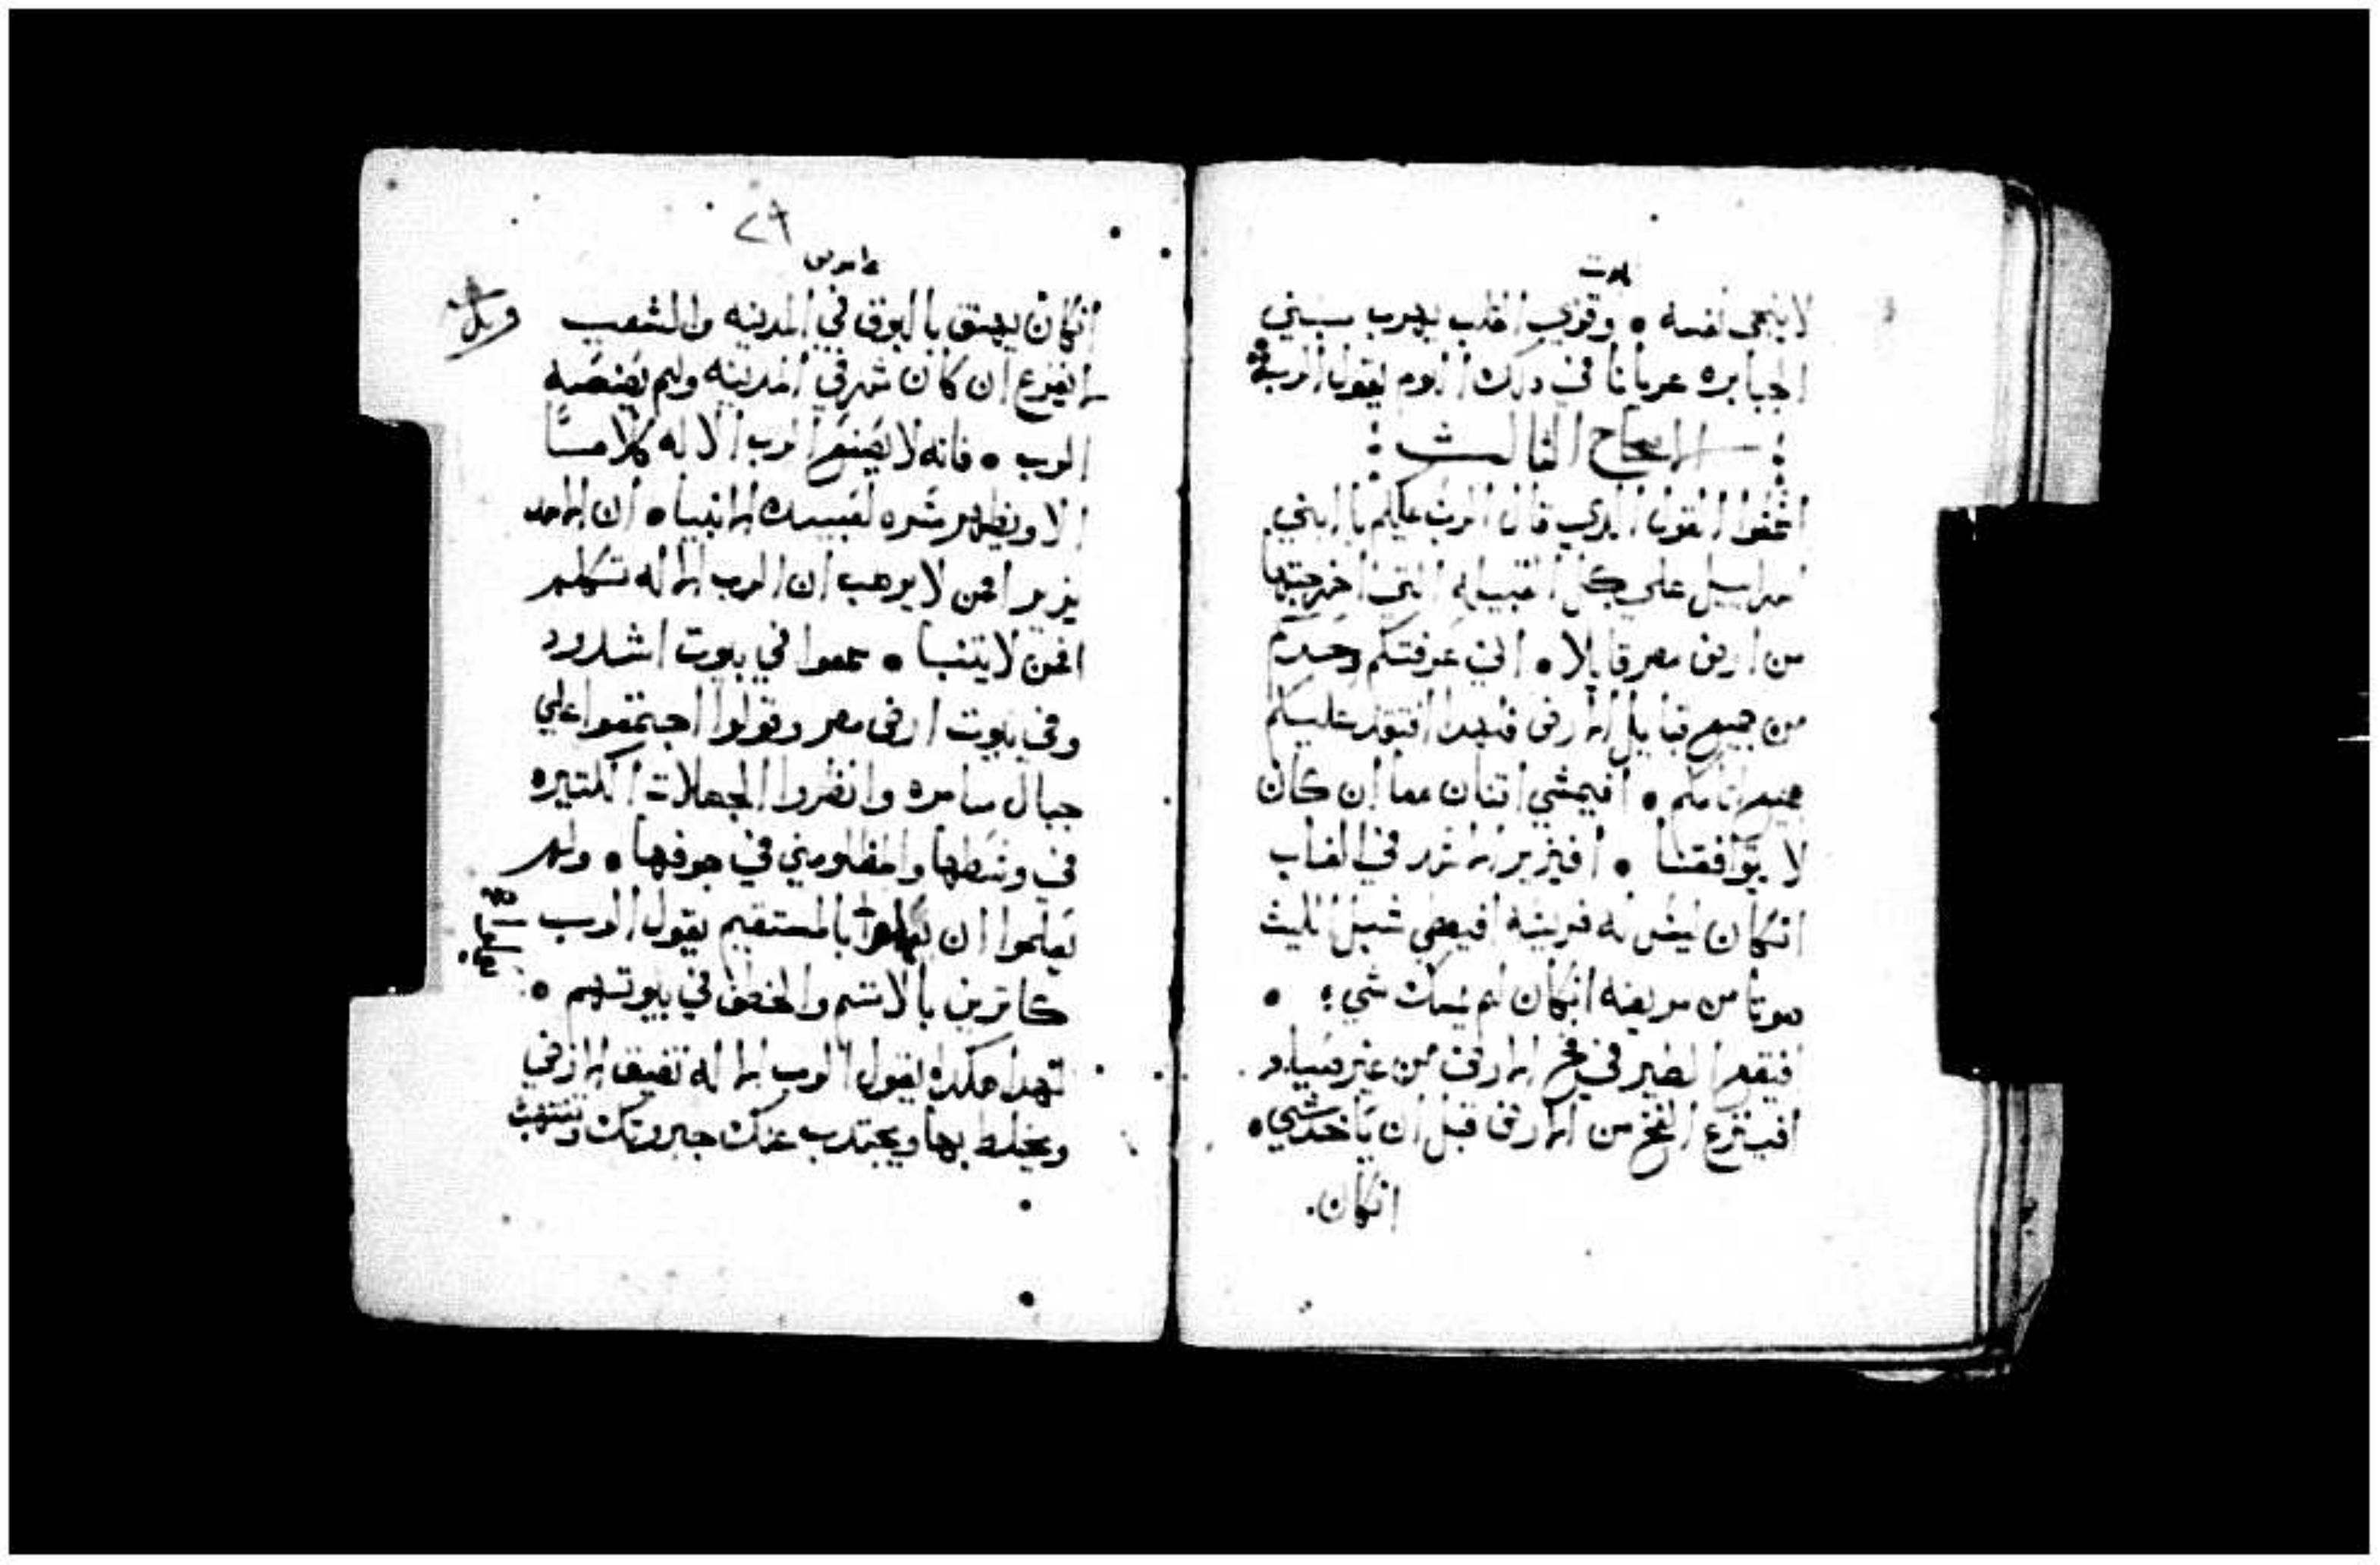 لا ينجي نفسه • وقوي القلب يهرب بيني
الجبابره عريانا في دلك اليوم يقول الرب
الاصحاح الثالث
اسمعوا القول الدي قال الرب عليكم يا بني
اسراييل علي كل القبيله التي اخرجتها
من ارض مصر قايلا • اني عرفتكم وحدكم
من جميع قبايل الارض فلهدا افتقد عليكم
جميع اتامكم • افيمشي اتنان معا ان كان
لا يوافقنا • افيزير الاسد في الغاب
انكان ليس له فريسه افيعطي شبل الليث
صوتا من مربضه انكان لم يمسك شيء •
افيقع الطير في فخ الارض من غير صياد
افينزع الفخ من الارض قبل ان ياخد شي •
انكان.
٢٩
عاموص
انكان يهتق بالبوق في المدينه والشعب
لا يفزع ان كان شر في المدينه ولم يصنعه
الرب • فانه لا يصنع الرب الاله كلامًا
الا ويظهر سره لعبيده الانبيا • ان الاسد
يزير فمن لا يرهب ان الرب الاله تكلم
فمن لا يتنبا • سمعوا في بيوت اشدود
وفي بيوت ارض مصر وقولوا اجتمعوا علي
جبال سامره وانظروا الجهالات الكتيره
في وسطها والمظلومين في جوفها • ولم
يعلموا ان يعملوا بالمستقيم يقول الرب
كانزين بالاتم والخطف في بيوتهم •
لهدا هكدا يقول الرب الاله تضيق الارض
ويحيط بها ويجتدب عنك جبروتك وتنتهب